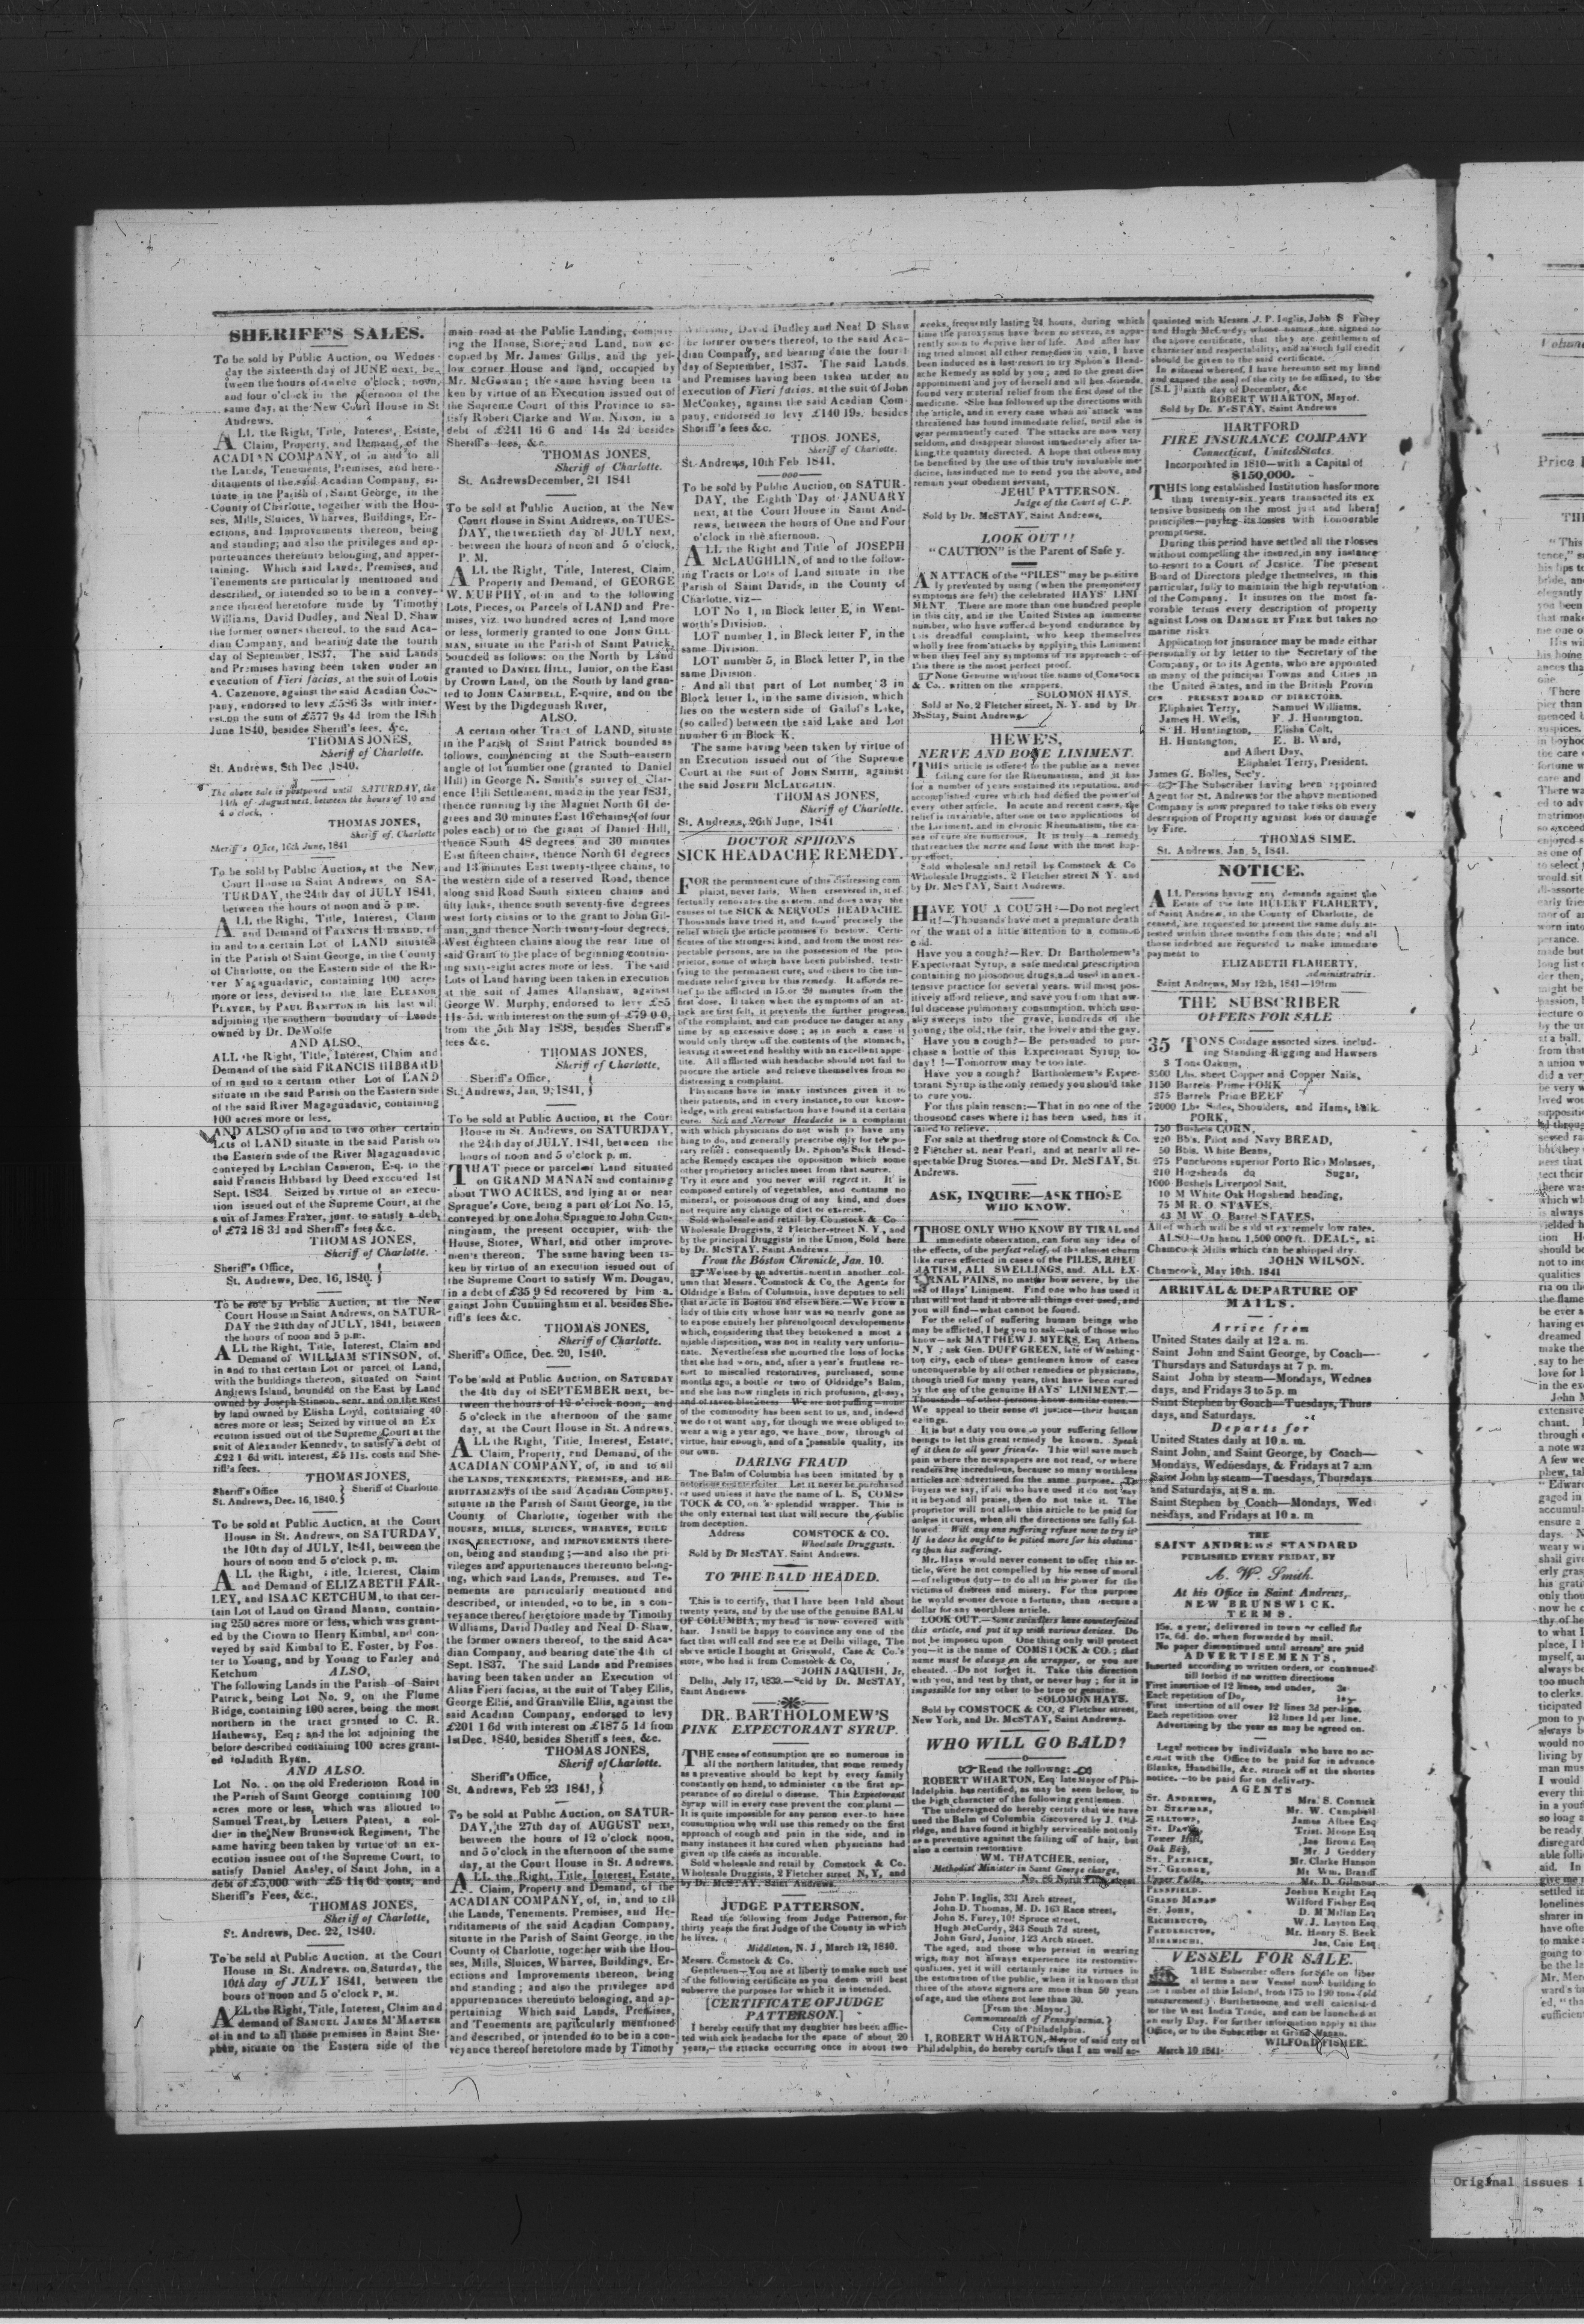 SHERIFF'S SALES.
To be sold by Public Auction, on Wednes-
day the sixteenth day of JUNE next, be-
tween the hours of twelve o'clock, noon,
and four o'clock in the afternoon of the
same day, at the New Court House in St
Andrews.
ALL the Right, Title, Interest, Estate,
Claim, Property, and Demand, of the
ACADIAN COMPANY, of in and to all
the Lands, Tenements, Premises, and here-
ditaments of the said Acadian Company, si-
tuate in the Parish of Saint George, in the
County of Charlotte, together with the Hou-
ses, Mills, Sluices, Wharves, Buildings, Er-
ections, and Improvements thereon, being
and standing; and also the privileges and ap-
purtenances thereunto belonging, and apper-
taining. Which said Lands, Premises, and
Tenements are particularly mentioned and
described, or intended so to be in a convey-
ance thereof heretofore made by Timothy
Williams, David Dudley, and Neal D. Shaw
the former owners thereof, to the said Aca-
dian Company, and bearing date the fourth
day of September, 1837. The said Lands
and Premises having been taken under an
execution of Fieri facias, at the suit of Louis
A. Cazenove, against the said Acadian Com-
pany, endorsed to levy £586 3s with inter-
est on the sum of £577 9s 4d from the 18th
June 1840, besides Sheriff's fees, &c.
THOMAS JONES,
Sheriff of Charlotte.
St. Andrews, 8th Dec 1840.
The above sale is postponed until SATURDAY, the
14th of August next, between the hours of 10 and
4 o'clock,
THOMAS JONES,
Sheriff of Charlotte
Sheriff's Office, 16th June, 1841
To be sold by Public Auction, at the New
Court House in Saint Andrews, on SA-
TURDAY, the 24th day of JULY 1841,
between the hours of noon and 5 p.m.
ALL the Right, Title, Interest, Claim
and Demand of FRANCIS HIBBARD, of
in and to a certain Lot of LAND situated
in the Parish of Saint George, in the County
of Charlotte, on the Eastern side of the Ri-
ver Magaguadavic, containing 100 acres
more or less, devised to the late ELEANOR
PLAYER, by PAUL BAMPTON in his last will
adjoining the southern boundary of Lands
owned by Dr. DeWolfe
AND ALSO.
ALL the Right, Title, Interest, Claim and
Demand of the said FRANCIS HIBBARD
of in and to a certain other Lot of LAND
situate in the said Parish on the Eastern side
of the said River Magaguadavic, containing
100 acres more or less.
AND ALSO of in and to two other certain
Lots of LAND situate in the said Parish on
the Eastern side of the River Magaguadavic
conveyed by Lachlan Cameron, Esq. to the
said Francis Hibbard by Deed executed 1st
Sept. 1834. Seized by virtue of an execu-
tion issued out of the Supreme Court, at the
suit of James Frazer, junr. to satisfy a debt
of £72 18 3d and Sheriff's fees &c.
THOMAS JONES,
Sheriff of Charlotte.
Sheriff's Office,
St. Andrews, Dec. 16, 1840.
To be sold by Public Auction, at the New
Court House in Saint Andrews, on SATUR-
DAY the 24th day of JULY, 1841, between
the hours of noon and 5 p.m.
ALL the Right, Title, Interest, Claim and
Demand of WILLIAM STINSON, of,
in and to that certain Lot or parcel of Land,
with the buildings thereon, situated on Saint
Andrews Island, bounded on the East by Land
owned by Joseph Stinson, senr. and on the west
by land owned by Elisha Loyd, containing 40
acres more or less; Seized by virtue of an Ex
ecution issued out of the Supreme Court at the
suit of Alexander Kennedy, to satisfy a debt of
£22 1 6d with interest, £5 11s. costs and She-
riff's fees.
THOMAS JONES,
Sheriff of Charlotte
Sheriff's Office
St. Andrews, Dec. 16, 1840.
To be sold at Public Auction, at the Court
House in St. Andrews, on SATURDAY,
the 10th day of JULY, 1841, between the
hours of noon and 5 o'clock p. m.
ALL the Right, Title, Interest, Claim
and Demand of ELIZABETH FAR-
LEY, and ISAAC KETCHUM, to that cer-
tain Lot of Land on Grand Manan, contain-
ing 250 acres more or less, which was grant-
ed by the Crown to Henry Kimbal, and con-
veyed by said Kimbal to E. Foster, by Fos
ter to Young, and by Young to Farley and
Ketchum
ALSO,
The following Lands in the Parish of Saint
Patrick, being Lot No. 9, on the Flume
Ridge, containing 100 acres, being the most
northern in the tract granted to C. R.
Hatheway, Esq; and the lot adjoining the
before described containing 100 acres grant-
ed to Judith Ryan.
AND ALSO.
Lot No. on the old Fredericton Road in
the Parish of Saint George containing 100
acres more or less, which was allotted to
Samuel Treat, by Letters Patent, a sol-
dier in the New Brunswick Regiment, The
same having been taken by virtue of an ex-
ecution issued out of the Supreme Court, to
satisfy Daniel Ansley, of Saint John, in a
debt of £5,000 with £5 11s 6d costs, and
Sheriff's Fees, &c.,
THOMAS JONES,
Sheriff of Charlotte,
St. Andrews, Dec. 22, 1840.
To be sold at Public Auction, at the Court
House in St. Andrews, on Saturday, the
10th day of JULY 1841, between the
hours of noon and 5 o'clock P. M.
ALL the Right, Title, Interest, Claim and
demand of SAMUEL JAMES M'MASTER
of in and to all those premises in Saint Ste-
phen, situate on the Eastern side of the
main road at the Public Landing, compris-
ing the House, Store, and Land, now oc-
cupied by Mr. James Gillis, and the yel-
low corner House and land, occupied by
Mr. McGowan; the same having been ta
ken by virtue of an Execution issued out of
the Supreme Court of this Province to sa-
tisfy Robert Clarke and Wm. Nixon, in a
debt of £241 16 6 and 14s 2d besides
Sheriff's fees, &c.
THOMAS JONES,
Sheriff of Charlotte.
St. Andrews December, 21 1841
To be sold at Public Auction, at the New
Court House in Saint Andrews, on TUES-
DAY, the twentieth day of JULY next,
between the hours of noon and 5 o'clock,
P. M.
ALL the Right, Title, Interest, Claim,
Property and Demand, of GEORGE
W. MURPHY, of in and to the following
Lots, Pieces, or Parcels of LAND and Pre-
mises, viz. two hundred acres of Land more
or less, formerly granted to one JOHN GILL
MAN, situate in the Parish of Saint Patrick,
bounded as follows: on the North by Land
granted to DANIEL HILL, Junior, on the East
by Crown Land, on the South by land gran-
ted to JOHN CAMPBELL, Esquire, and on the
West by the Digdeguash River,
ALSO.
A certain other Tract of LAND, situate
in the Parish of Saint Patrick bounded as
follows, commencing at the South-eastern
angle of lot number one (granted to Daniel
Hill) in George N. Smith's survey of Clar-
ence Hill Settlement, made in the year 1831,
thence running by the Magnet North 61 de-
grees and 30 minutes East 16 chains, (of four
poles each) or to the grant of Daniel Hill,
thence South 48 degrees and 30 minutes
East fifteen chains, thence North 61 degrees
and 13 minutes East twenty-three chains, to
the western side of a reserved Road, thence
along said Road South sixteen chains and
fifty links, thence south seventy-five degrees
west forty chains or to the grant to John Gil-
man, and thence North twenty-four degrees,
West eighteen chains along the rear line of
said Grant to the place of beginning contain-
ing sixty-eight acres more or less. The said
Lots of Land having been taken in execution
at the suit of James Allanshaw, against
George W. Murphy, endorsed to levy £85
11s 5d. with interest on the sum of £79 0 0,
from the 5th May 1838, besides Sheriff's
fees &c.
THOMAS JONES,
Sheriff of Charlotte,
Sheriff's Office,
St. Andrews, Jan. 9, 1841,
To be sold at Public Auction, at the Court
House in St. Andrews, on SATURDAY,
the 24th day of JULY, 1841, between the
hours of noon and 5 o'clock p. m.
THAT piece or parcel of Land situated
on GRAND MANAN and containing
about TWO ACRES, and lying at or near
Sprague's Cove, being a part of Lot No. 15,
conveyed by one John Sprague to John Cun-
ningham, the present occupier, with the
House, Stores, Wharf, and other improve-
men's thereon. The same having been ta-
ken by virtue of an execution issued out of
the Supreme Court to satisfy Wm. Dougan,
in a debt of £35 9 8d recovered by him a-
gainst John Cunningham et al. besides She-
riff's fees &c.
THOMAS JONES,
Sheriff of Charlotte.
Sheriff's Office, Dec. 20, 1840.
To be sold at Public Auction, on SATURDAY
the 4th day of SEPTEMBER next, be-
tween the hours of 12 o'clock noon, and
5 o'clock in the afternoon of the same
day, at the Court House in St. Andrews.
ALL the Right, Title, Interest, Estate,
Claim, Property, and Demand, of the
ACADIAN COMPANY, of, in and to all
the LANDS, TENEMENTS, PREMISES, and HE-
RIDITAMENTS of the said Acadian Company,
situate in the Parish of Saint George, in the
County of Charlotte, together with the
HOUSES, MILLS, SLUICES, WHARVES, BUILD
INGS, ERECTIONS, and IMPROVEMENTS there-
on, being and standing;—and also the pri-
vileges and appurtenances thereunto belong-
ing, which said Lands, Premises, and Te-
nements are particularly mentioned and
described, or intended, so to be, in a con-
veyance thereof heretofore made by Timothy
Williams, David Dudley and Neal D. Shaw,
the former owners thereof, to the said Aca-
dian Company, and bearing date the 4th of
Sept. 1837. The said Lands and Premises
having been taken under an Execution of
Alias Fieri facias, at the suit of Tabey Ellis,
George Ellis, and Granville Ellis, against the
said Acadian Company, endorsed to levy
£201 1 6d with interest on £187 5 1d from
1st Dec. 1840, besides Sheriff's fees, &c.
THOMAS JONES,
Sheriff of Charlotte.
Sheriff's Office,
St. Andrews, Feb 23 1841,
To be sold at Public Auction, on SATUR-
DAY, the 27th day of AUGUST next,
between the hours of 12 o'clock noon,
and 5 o'clock in the afternoon of the same
day, at the Court House in St. Andrews.
ALL the Right, Title, Interest, Estate,
Claim, Property and Demand, of the
ACADIAN COMPANY, of, in, and to all
the Lands, Tenements, Premises, and He-
riditaments of the said Acadian Company,
situate in the Parish of Saint George, in the
County of Charlotte, together with the Hou-
ses, Mills, Sluices, Wharves, Buildings, Er-
ections and Improvements thereon, being
and standing; and also the privileges and
appurtenances thereunto belonging, and ap-
pertaining Which said Lands, Premises,
and Tenements are particularly mentioned
and described, or intended so to be in a con-
veyance thereof heretofore made by Timothy
Williams, David Dudley and Neal D Shaw
the former owners thereof, to the said Aca-
dian Company, and bearing date the fourth
day of September, 1837. The said Lands
and Premises having been taken under an
execution of Fieri facias, at the suit of John
McConkey, against the said Acadian Com-
pany, endorsed to levy £140 19s. besides
Sheriff's fees &c.
THOS. JONES,
Sheriff of Charlotte.
St. Andrews, 10th Feb. 1841.
To be sold by Public Auction, on SATUR-
DAY, the Eighth Day of JANUARY
next, at the Court House in Saint And-
rews, between the hours of One and Four
o'clock in the afternoon.
ALL the Right and Title of JOSEPH
McLAUGHLIN, of and to the follow-
ing Tracts or Lots of Land situate in the
Parish of Saint Davids, in the County of
Charlotte, viz—
LOT No 1, in Block letter E, in Went-
worth's Division.
LOT number 1, in Block letter F, in the
same Division.
LOT number 5, in Block letter P, in the
same Division.
And all that part of Lot number 3 in
Block letter L, in the same division, which
lies on the western side of Gallop's Lake,
(so called) between the said Lake and Lot
number 6 in Block K.
The same having been taken by virtue of
an Execution issued out of the Supreme
Court at the suit of JOHN SMITH, against
the said JOSEPH McLAUGHLIN.
THOMAS JONES,
Sheriff of Charlotte.
St. Andrews, 26th June, 1841
DOCTOR SPHON'S
SICK HEADACHE REMEDY.
FOR the permanent cure of this distressing com
plaint, never fails. When persevered in, it ef
fectually renovates the system, and does away the
causes of the SICK & NERVOUS HEADACHE.
Thousands have tried it, and found precisely the
relief which the article promises to bestow. Certi-
ficates of the strongest kind, and from the most res-
pectable persons, are in the possession of the pro-
prietor, some of which have been published, testi-
fying to the permanent cure, and others to the im-
mediate relief given by this remedy. It affords re-
lief to the afflicted in 15 or 20 minutes from the
first dose. If taken when the symptoms of an at-
tack are first felt, it prevents the further progress
of the complaint, and can produce no danger at any
time by an excessive dose; as in such a case it
would only throw off the contents of the stomach,
leaving it sweet and healthy with an excellent appe-
tite. All afflicted with headache should not fail to
procure the article and relieve themselves from so
distressing a complaint.
Physicians have in many instances given it to
their patients, and in every instance, to our know-
ledge, with great satisfaction have found it a certain
cure. Sick and Nervous Headache is a complaint
with which physicians do not wish to have any
thing to do, and generally prescribe only for tempo-
rary relief: consequently Dr. Sphon's Sick Head-
ache Remedy escapes the opposition which some
other proprietary articles meet from that source.
Try it once and you never will regret it. It is
composed entirely of vegetables, and contains no
mineral, or poisonous drug of any kind, and does
not require any change of diet or exercise.
Sold wholesale and retail by Comstock & Co
Wholesale Druggists, 2 Fletcher-street N. Y., and
by the principal Druggists in the Union, Sold here
by Dr. McSTAY, Saint Andrews
From the Boston Chronicle, Jan. 10.
We see by an advertisement in another col-
umn that Messrs. Comstock & Co, the Agents for
Oldridge's Balm of Columbia, have deputies to sell
that article in Boston and elsewhere.—We know a
lady of this city whose hair was so nearly gone as
to expose entirely her phrenological developements
which, considering that they betokened a most a
miable disposition, was not in reality very unfortu-
nate. Nevertheless she mourned the loss of locks
that she had worn, and, after a year's fruitless re-
sort to miscalled restoratives, purchased, some
months ago, a bottle or two of Oldridge's Balm,
and she has now ringlets in rich profusion, glossy,
and of raven blackness We are not puffing—none
of the commodity has been sent to us, and, indeed
we do not want any, for though we were obliged to
wear a wig a year ago, we have now, through of
virtue, hair enough, and of a passable quality, its
our own.
DARING FRAUD
The Balm of Columbia has been imitated by a
notorious counterfeiter Let it never be purchased
or used unless it have the name of L. S. COMS-
TOCK & CO, on a splendid wrapper. This is
the only external test that will secure the public
from deception.
Address COMSTOCK & CO.
Wholesale Druggists.
Sold by Dr McSTAY, Saint Andrews.
TO THE BALD HEADED.
This is to certify, that I have been bald about
twenty years, and by the use of the genuine BALM
OF COLUMBIA, my head is now covered with
hair. I shall be happy to convince any one of the
fact that will call and see me at Delhi village, The
above article I bought at Griswold, Case & Co.'s
store, who had it from Comstock & Co.
JOHN JAQUISH, Jr,
Delhi, July 17, 1839.—Sold by Dr. McSTAY,
Saint Andrews
DR. BARTHOLOMEW'S
PINK EXPECTORANT SYRUP.
THE cases of consumption are so numerous in
all the northern latitudes, that some remedy
as a preventive should be kept by every family
constantly on hand, to administer on the first ap-
pearance of so direful a disease. This Expectorant
Syrup will in every case prevent the complaint—
It is quite impossible for any person ever to have
consumption who will use this remedy on the first
approach of cough and pain in the side, and in
many instances it has cured when physicians had
given up the cases as incurable.
Sold wholesale and retail by Comstock & Co.
Wholesale Druggists, 2 Fletcher street N. Y., and
by Dr. McSTAY, Saint Andrews.
JUDGE PATTERSON.
Read the following from Judge Patterson, for
thirty years the first Judge of the County in which
he lives.
Middleton, N. J., March 12, 1840.
Messrs. Comstock & Co.
Gentlemen—You are at liberty to make such use
of the following certificate as you deem will best
subserve the purposes for which it is intended.
[CERTIFICATE OF JUDGE
PATTERSON.]
I hereby certify that my daughter has been afflic-
ted with sick headache for the space of about 20
years,—the attacks occurring once in about two
weeks, frequently lasting 24 hours, during which
time the paroxysms have been so severe, as appa-
rently soon to deprive her of life. And after hav
ing tried almost all other remedies in vain, I have
been induced as a last resort to try Sphon's Head-
ache Remedy as sold by you; and to the great dis-
appointment and joy of herself and all her friends,
found very material relief from the first dose of the
medicine. She has followed up the directions with
the article, and in every case when an attack was
threatened has found immediate relief, until she is
now permanently cured. The attacks are now very
seldom, and disappear almost immediately after ta-
king the quantity directed. A hope that others may
be benefited by the use of this truly invaluable me-
dicine, has induced me to send you the above, and
remain your obedient servant,
JEHU PATTERSON.
Judge of the Court of C. P.
Sold by Dr. McSTAY, Saint Andrews,
LOOK OUT!!
"CAUTION" is the Parent of Safety.
AN ATTACK of the "PILES" may be positive
ly prevented by using (when the premonitory
symptoms are felt) the celebrated HAYS' LINI
MENT. There are more than one hundred people
in this city, and in the United States an immense
number, who have suffered beyond endurance by
this dreadful complaint, who keep themselves
wholly free from attacks by applying this Liniment
when they feel any symptoms of its approach: of
this there is the most perfect proof.
None Genuine without the name of COMSTOCK
& Co. written on the wrappers.
SOLOMON HAYS.
Sold at No. 2 Fletcher street, N. Y. and by Dr.
McStay, Saint Andrews
HEWE'S,
NERVE AND BONE LINIMENT.
THIS article is offered to the public as a never
failing cure for the Rheumatism, and it has
for a number of years sustained its reputation, and
accomplished cures which had defied the power of
every other article. In acute and recent cases, the
relief is invariable, after one or two applications of
the Liniment, and in chronic Rheumatism, the ca-
ses of cure are numerous. It is truly a remedy
that reaches the nerve and bone with the most hap-
py effect.
Sold wholesale and retail by Comstock & Co
Wholesale Druggists, 2 Fletcher street N Y. and
by Dr. McSTAY, Saint Andrews.
HAVE YOU A COUGH?—Do not neglect
it!—Thousands have met a premature death
or the want of a little attention to a common
cold.
Have you a cough?—Rev. Dr Bartholomew's
Expectorant Syrup, a safe medical prescription
containing no poisonous drugs, and used in an ex-
tensive practice for several years, will most pos-
itively afford relieve, and save you from that aw-
ful disease pulmonary consumption, which usu-
ally sweeps into the grave, hundreds of the
young, the old, the fair, the lovely and the gay.
Have you a cough?—Be persuaded to pur-
chase a bottle of this Expectorant Syrup to-
day!!—Tomorrow may be too late.
Have you a cough? Bartholomew's Expec-
torant Syrup is the only remedy you should take
to cure you.
For this plain reason:—That in no one of the
thousand cases where it has been used, has it
failed to relieve.
For sale at the drug store of Comstock & Co.
2 Fletcher st. near Pearl, and at nearly all re-
spectable Drug Stores.—and Dr. McSTAY, St.
Andrews.
ASK, INQUIRE—ASK THOSE
WHO KNOW.
THOSE ONLY WHO KNOW BY TIRAL and
immediate observation, can form any idea of
the effects, of the perfect relief, of the almost charm
like cures effected in cases of the PILES, RHEU
MATISM, ALL SWELLINGS, and ALL EX-
TERNAL PAINS, no matter how severe, by the
use of Hays' Liniment. Find one who has used it
that will not laud it above all things ever used, and
you will find—what cannot be found.
For the relief of suffering human beings who
may be afflicted, I beg you to ask—ask of those who
know—ask MATTHEW J. MYERS, Esq. Athens
N, Y; ask Gen. DUFF GREEN, late of Washing-
ton city, each of these gentlemen know of cases
unconquerable by all other remedies or physicians,
though tried for many years, that have been cured
by the use of the genuine HAYS' LINIMENT.—
Thousands of other persons know similar cures.—
We appeal to their sense of justice—their human
eelings.
It is but a duty you owe to your suffering fellow
beings to let this great remedy be known. Speak
of it then to all your friends. This will save much
pain where the newspapers are not read, or where
readers are incredulous, because so many worthless
articles are advertised for the same purpose. To
buyers we say, if all who have used it do not say
it is beyond all praise, then do not take it. The
proprietor will not allow this article to be paid for
unless it cures, when all the directions are fully fol-
lowed. Will any one suffering refuse now to try it?
If he does he ought to be pitied more for his obstina-
cy than his suffering.
Mr. Hays would never consent to offer this ar-
ticle, were he not compelled by his sense of moral
—of religious duty—to do all in his power for the
victims of distress and misery. For this purpose
he would sooner devote a fortune, than secure a
dollar for any worthless article.
LOOK OUT.—Some swindlers have counterfeited
this article, and put it up with various devices. Do
not be imposed upon One thing only will protect
you—it is the name of COMSTOCK & CO.; that
name must be always on the wrapper, or you are
cheated. Do not forget it. Take this direction
with you, and test by that, or never buy; for it is
impossible for any other to be true or genuine.
SOLOMON HAYS.
Sold by COMSTOCK & CO, 2 Fletcher street,
New York, and Dr. McSTAY, Saint Andrews.
WHO WILL GO BALD?
Read the following:
ROBERT WHARTON, Esq late Mayor of Phi-
ladelphia has certified, as may be seen below, to
the high character of the following gentlemen.
The undersigned do hereby certify that we have
used the Balm of Columbia discovered by J. Old-
ridge, and have found in highly serviceable not only
as a preventive against the falling off of hair, but
also a certain restorative
WM. THATCHER, senior,
Methodist Minister in Saint George charge,
No. 86 North Fifth street
John P. Inglis, 331 Arch street,
John D. Thomas, M. D. 163 Race street,
John S. Furey, 101 Spruce street,
Hugh McCurdy, 243 South 7d street,
John Gard, Junior 123 Arch street.
The aged, and those who persist in wearing
wigs, may not always experience its restorativ-
qualities, yet it will certainly raise its virtues in
the estimation of the public, when it is known that
three of the above signers are more than 50 years
of age, and the others not less than 30.
[From the Mayor.]
Commonwealth of Pennsylvania.
City of Philadelphia.
I, ROBERT WHARTON, Mayor of said city of
Philadelphia, do hereby certify that I am well ac-
quainted with Messrs J. P. Inglis, John S Furey
and Hugh McCurdy, whose names are signed to
the above certificate, that they are gentlemen of
character and respectability, and as such full credit
should be given to the said certificate.
In witness whereof, I have hereunto set my hand
and caused the seal of the city to be affixed, to the
[S.L.] sixth day of December, &c
ROBERT WHARTON, Mayor.
Sold by Dr. McSTAY, Saint Andrews
HARTFORD
FIRE INSURANCE COMPANY
Connecticut, United States.
Incorporated in 1810—with a Capital of
$150,000.
THIS long established Institution has for more
than twenty-six years transacted its ex
tensive business on the most just and liberal
principles—paying its losses with honourable
promptness.
During this period have settled all the r losses
without compelling the insured, in any instance
to resort to a Court of Justice. The present
Board of Directors pledge themselves, in this
particular, fully to maintain the high reputation
of the Company. It insures on the most fa-
vorable terms every description of property
against LOSS or DAMAGE BY FIRE but takes no
marine risks
Application for insurance may be made either
personally or by letter to the Secretary of the
Company, or to its Agents, who are appointed
in many of the principal Towns and Cities in
the United States, and in the British Provin
ces PRESENT BOARD OF DIRECTORS.
Eliphalet Terry, Samuel Williams.
James H. Wells, F. J. Huntington.
S. H. Huntington, Elisha Colt,
H. Huntington, E. B. Ward,
and Albert Day.
Eliphalet Terry, President.
James G. Bolles, Sec'y.
The Subscriber having been appointed
Agent for St. Andrews for the above mentioned
Company is now prepared to take risks on every
description of Property against loss or damage
by Fire.
THOMAS SIME.
St. Andrews, Jan. 5, 1841.
NOTICE.
ALL Persons having any demands against the
Estate of the late HUBERT FLAHERTY,
of Saint Andrews, in the County of Charlotte, de
ceased, are requested to present the same duly at-
tested within three months from this date; and all
those indebted are requested to make immediate
payment to
ELIZABETH FLAHERTY,
Administratrix.
Saint Andrews, May 12th, 1841—19trm
THE SUBSCRIBER
OFFERS FOR SALE
35 TONS Cordage assorted sizes, includ-
ing Standing Rigging and Hawsers
3 Tons Oakum,
3500 Lbs. sheet Copper and Copper Nails,
1150 Barrels Prime PORK
275 Barrels Prime BEEF
72000 Lbs Sides, Shoulders, and Hams, bulk
PORK,
750 Bushels CORN,
220 Bb's. Pilot and Navy BREAD,
50 Bbls. White Beans,
275 Puncheons superior Porto Rico Molasses,
210 Hogsheads do Sugar,
1000 Bushels Liverpool Salt,
10 M White Oak Hogshead heading,
75 M R. O. STAVES,
43 M W. O. Barrel STAVES.
All of which will be sold at extremely low rates.
ALSO—On hand 1,500 000 ft. DEALS, at
Chamcock Mills which can be shipped dry.
JOHN WILSON.
Chamcock, May 10th. 1841
ARRIVAL & DEPARTURE OF
MAILS.
Arrive from
United States daily at 12 a. m.
Saint John and Saint George, by Coach—
Thursdays and Saturdays at 7 p. m.
Saint John by steam—Mondays, Wednes
days, and Fridays 3 to 5 p. m
Saint Stephen by Coach—Tuesdays, Thurs
days, and Saturdays.
Departs for
United States daily at 10 a. m.
Saint John, and Saint George, by Coach—
Mondays, Wednesdays, & Fridays at 7 a.m
Saint John by steam—Tuesdays, Thursdays
and Saturdays, at 8 a. m.
Saint Stephen by Coach—Mondays, Wed
nesdays, and Fridays at 10 a. m
THE
SAINT ANDREWS STANDARD
PUBLISHED EVERY FRIDAY, BY
A. W. Smith.
At his Office in Saint Andrews,
NEW BRUNSWICK.
TERMS.
15s. a year, delivered in town or called for
17s. 6d. do. when forwarded by mail.
No paper discontinued until arrears are paid
ADVERTISEMENTS,
Inserted according to written orders, or continued
till forbid if no written directions
First insertion of 12 lines, and under, 3s
Each repetition of Do, 1s
First insertion of all over 12 lines 3d per line.
Each repetition over 12 lines 1d per line.
Advertising by the year as may be agreed on.
Legal notices by individuals who have no ac-
count with the Office to be paid for in advance
Blanks, Handbills, &c. struck off at the shortes
notice.—to be paid for on delivery.
AGENTS
ST. ANDREWS, Mrs. S. Connick
ST. STEPHEN, Mr. W. Campbell
MILLTOWN, James Albee Esq
ST. DAVID Trist. Moore Esq
Tower Hill, Jas Brown Esq
Oak Bay, Mr. J Geddery
ST. PATRICK, Mr. Clarke Hanson
ST. GEORGE, Mr Wm. Brandf
Upper Falls, Mr. D. Gilmour
PENNFIELD. Joshua Knight Esq
GRAND MANAN Wilford Fisher Esq
ST. JOHN, D. M'Millan Esq
RICHIBUCTO, W. J. Layton Esq
FREDERICTON, Mr. Henry S. Beek
MIRAMICHI. Jas, Caie Esq
VESSEL FOR SALE.
THE Subscriber offers for Sale on liber
al terms a new Vessel now building in
the timber of this Island, from 175 to 190 tons (old
measurement) Burthensome, and well calculated
for the West India Trade, and can be launched at
an early Day. For further information apply at this
Office, or to the Subscriber at Grand Manan.
WILFORD FISHER.
March 19 1841
Original issues i